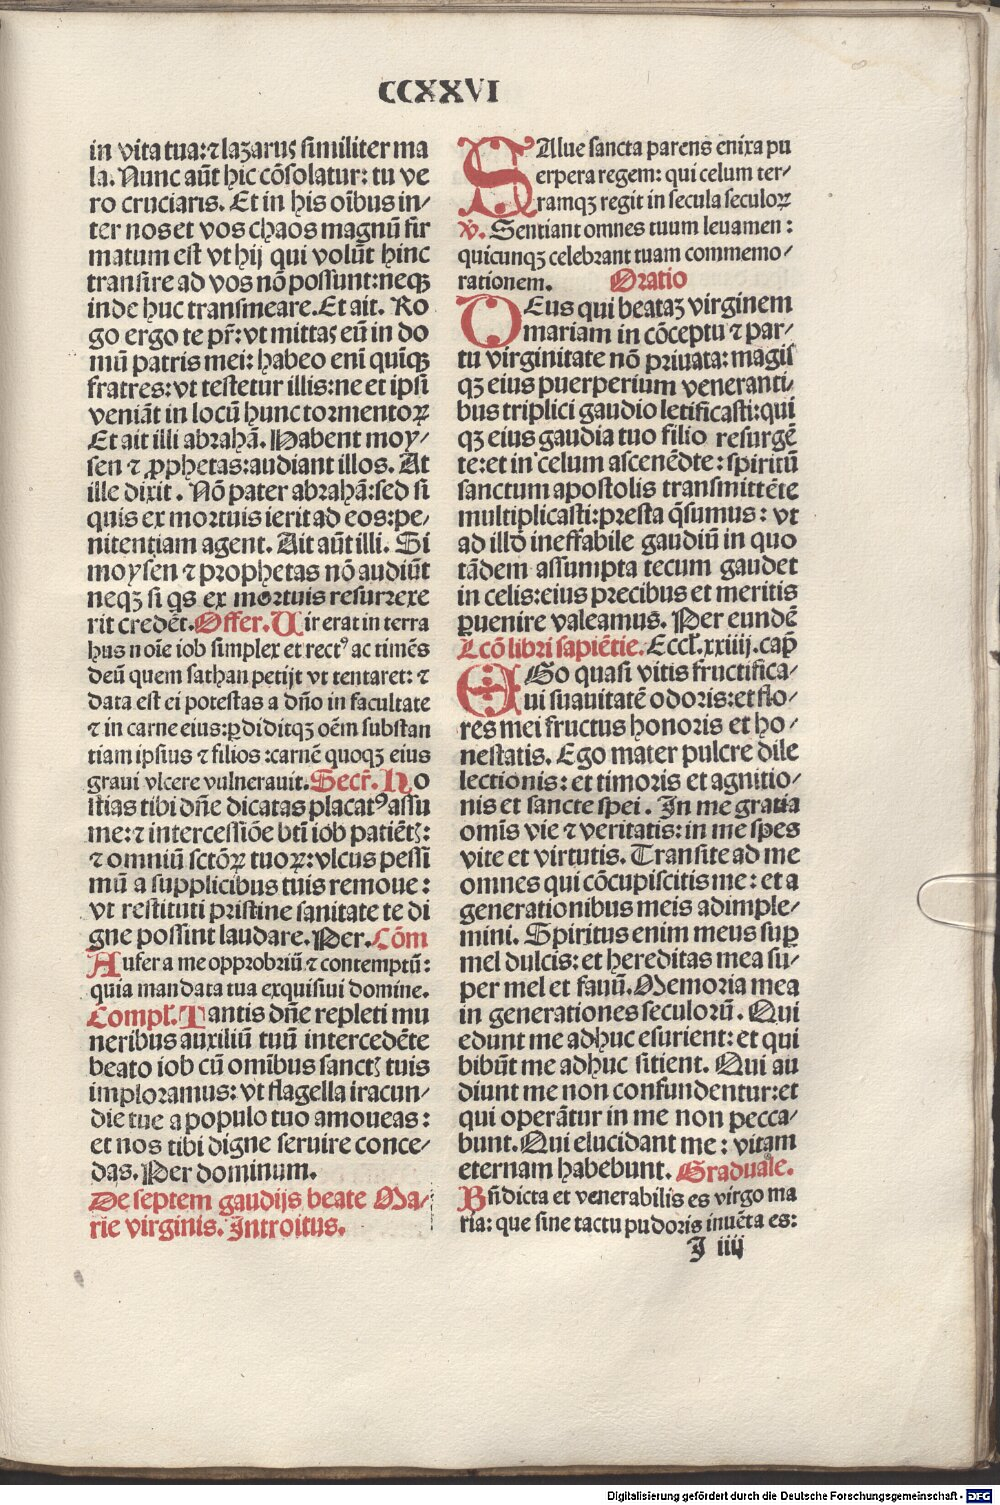 CCXXVI
in vita tua: ⁊ lazarus similiter ma
la. Nunc aūt hic cōsolatur: tu ve
ro cruciaris. Et in his oībus in-
ter nos et vos chaos magnū fir
matum est vt hij qui volūt hinc
transire ad vos nō possunt: neqꝫ
inde huc transmeare. Et ait. Ro
go ergo te pr̄: vt mittas eū in do
mū patris mei: habeo enī quīqꝫ
fratres: vt testetur illis: ne et ipsi
veniāt in locū hunc tormentoꝝ
Et ait illi abrahā. Habent moy-
sen ⁊ ꝓphetas: audiant illos. At
ille dixit. Nō pater abrahā: sed si
quis ex mortuis ierit ad eos: pe-
nitentiam agent. Ait aūt illi. Si
moysen ⁊ prophetas nō audiūt
neqꝫ si qs ex mortuis resurrexe
rit credēt. Offer. Uir erat in terra
hus noīe iob simplex et rectꝰ ac timēs
deū quem sathan petijt vt tentaret: ⁊
data est ei potestas a dn̄o in facultate
⁊ in carne eius: ꝑdiditqꝫ oēm substan
tiam ipsius ⁊ filios: carnē quoqꝫ eius
graui vlcere vulnerauit. Secr̄. Ho
stias tibi dn̄e dicatas placatꝰ assu
me: ⁊ intercessiōe bt̄i iob patiētꝭ:
⁊ omniū sctōꝝ tuoꝝ: vlcus pessi
mū a supplicibus tuis remoue:
vt restituti pristine sanitate te di
gne possint laudare. Per. Cōm
Aufer a me opprobriū ⁊ contemptū:
quia mandata tua exquisiui domine.
Compl̄. Tantis dn̄e repleti mu
neribus auxiliū tuū intercedēte
beato iob cū omībus sanctꝭ tuis
imploramus: vt flagella iracun-
die tue a populo tuo amoueas:
et nos tibi digne seruire conce-
das. Per dominum.
De septem gaudijs beate Ma-
rie virginis. Introitus.
SAlue sancta parens enixa pu
erpera regem: qui celum ter-
ramqꝫ regit in secula seculoꝝ
℣. Sentiant omnes tuum leuamen:
quicunqꝫ celebrant tuam commemo-
rationem. Oratio
DEus qui beataꝫ virginem
mariam in cōceptu ⁊ par-
tu virginitate nō priuata: magis
qꝫ eius puerperium veneranti-
bus triplici gaudio letificasti: qui
qꝫ eius gaudia tuo filio resurgē
te: et in celum ascenēdte: spiritū
sanctum apostolis transmittēte
multiplicasti: presta qs̄umus: vt
ad illd̄ ineffabile gaudiū in quo
tādem assumpta tecum gaudet
in celis: eius precibus et meritis
ꝑuenire valeamus. Per eundē
Lcō libri sapiētie. Eccl̄. xxiiij. cap̄
EGo quasi vitis fructifica-
ui suauitatē odoris: et flo-
res mei fructus honoris et ho-
nestatis. Ego mater pulcre dile
lectionis: et timoris et agnitio-
nis et sancte spei. In me gratia
omīs vie ⁊ veritatis: in me spes
vite et virtutis. Transite ad me
omnes qui cōcupiscitis me: et a
generationibus meis adimple-
mini. Spiritus enim meus suꝑ
mel dulcis: et hereditas mea su-
per mel et fauū. Memoria mea
in generationes seculorū. Qui
edunt me adhuc esurient: et qui
bibūt me adhuc sitient. Qui au
diunt me non confundentur: et
qui operātur in me non pecca-
bunt. Qui elucidant me: vitam
eternam habebunt. Graduale.
Bn̄dicta et venerabilis es virgo ma
ria: que sine tactu pudoris inuēta es:
J iiij
Digitalisierung gefördert durch die Deutsche Forschungsgemeinschaft - DFG